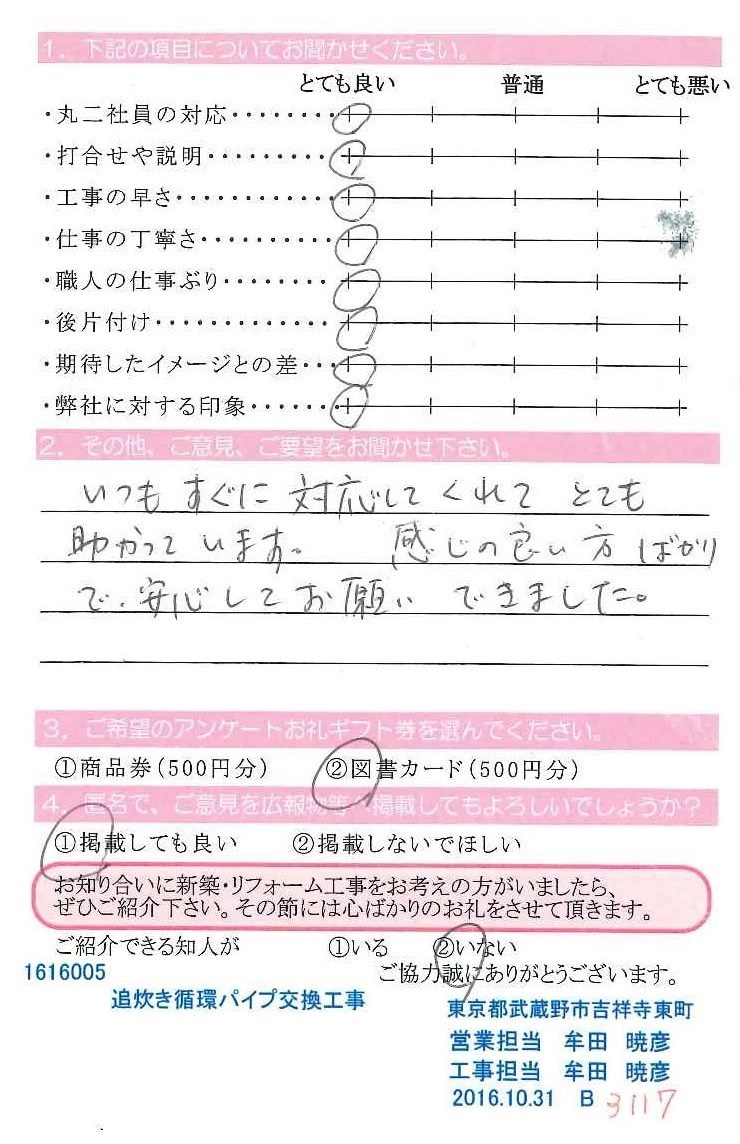 1. 下記の項目についてお聞かせください。
とても良い 普通 とても悪い
・丸二社員の対応・・・・・・・・
・打合せや説明・・・・・・・・・
・工事の早さ・・・・・・・・・・・
・仕事の丁寧さ・・・・・・・・・
・職人の仕事ぶり・・・・・・・・
・後片付け・・・・・・・・・・・・
・期待したイメージとの差・・・
・弊社に対する印象・・・・・・
2. その他、ご意見、ご要望をお聞かせ下さい。
いつもすぐに対応してくれてとても
助かっています。 感じの良い方ばかり
で、安心してお願いできました。
3. ご希望のアンケートお礼ギフト券を選んでください。
①商品券(500円分) ②図書カード(500円分)
4. 匿名で、ご意見を広報物等へ掲載してもよろしいでしょうか?
①掲載しても良い ②掲載しないでほしい
お知り合いに新築・リフォーム工事をお考えの方がいましたら、
ぜひご紹介下さい。その節には心ばかりのお礼をさせて頂きます。
ご紹介できる知人が ①いる ②いない
1616005 ご協力誠にありがとうございます。
追炊き循環パイプ交換工事
東京都武蔵野市吉祥寺東町
営業担当 牟田 暁彦
工事担当 牟田 暁彦
2016.10.31 B 3117